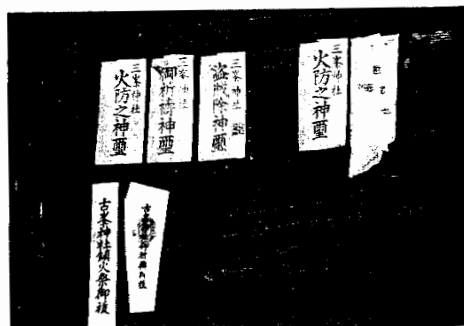 三峯神社
火防之神璽
三峯神社
盗賊除神璽
三峯神社
御祈祷神璽
三峯神社
火防之神璽
古峯神社鎮火祭御祓